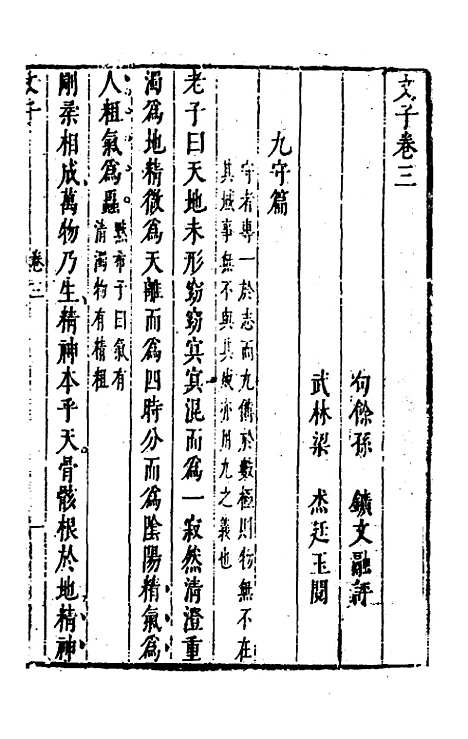 文子卷三
句餘孫 鑛文融評
武林梁 杰廷玉閱
九守篇
守者專一於志而九儒於數極則衍無不在
其域事無不與其域亦用九之義也
老子曰天地未形窈窈冥冥混而為一寂然清澄重
濁為地精微為天離而為四時分而為陰陽精氣為
人粗氣為蟲。
默希子曰氣有
清濁物有精粗
剛柔相成萬物乃生精神本乎天。骨骸根於地精神
文子
卷三